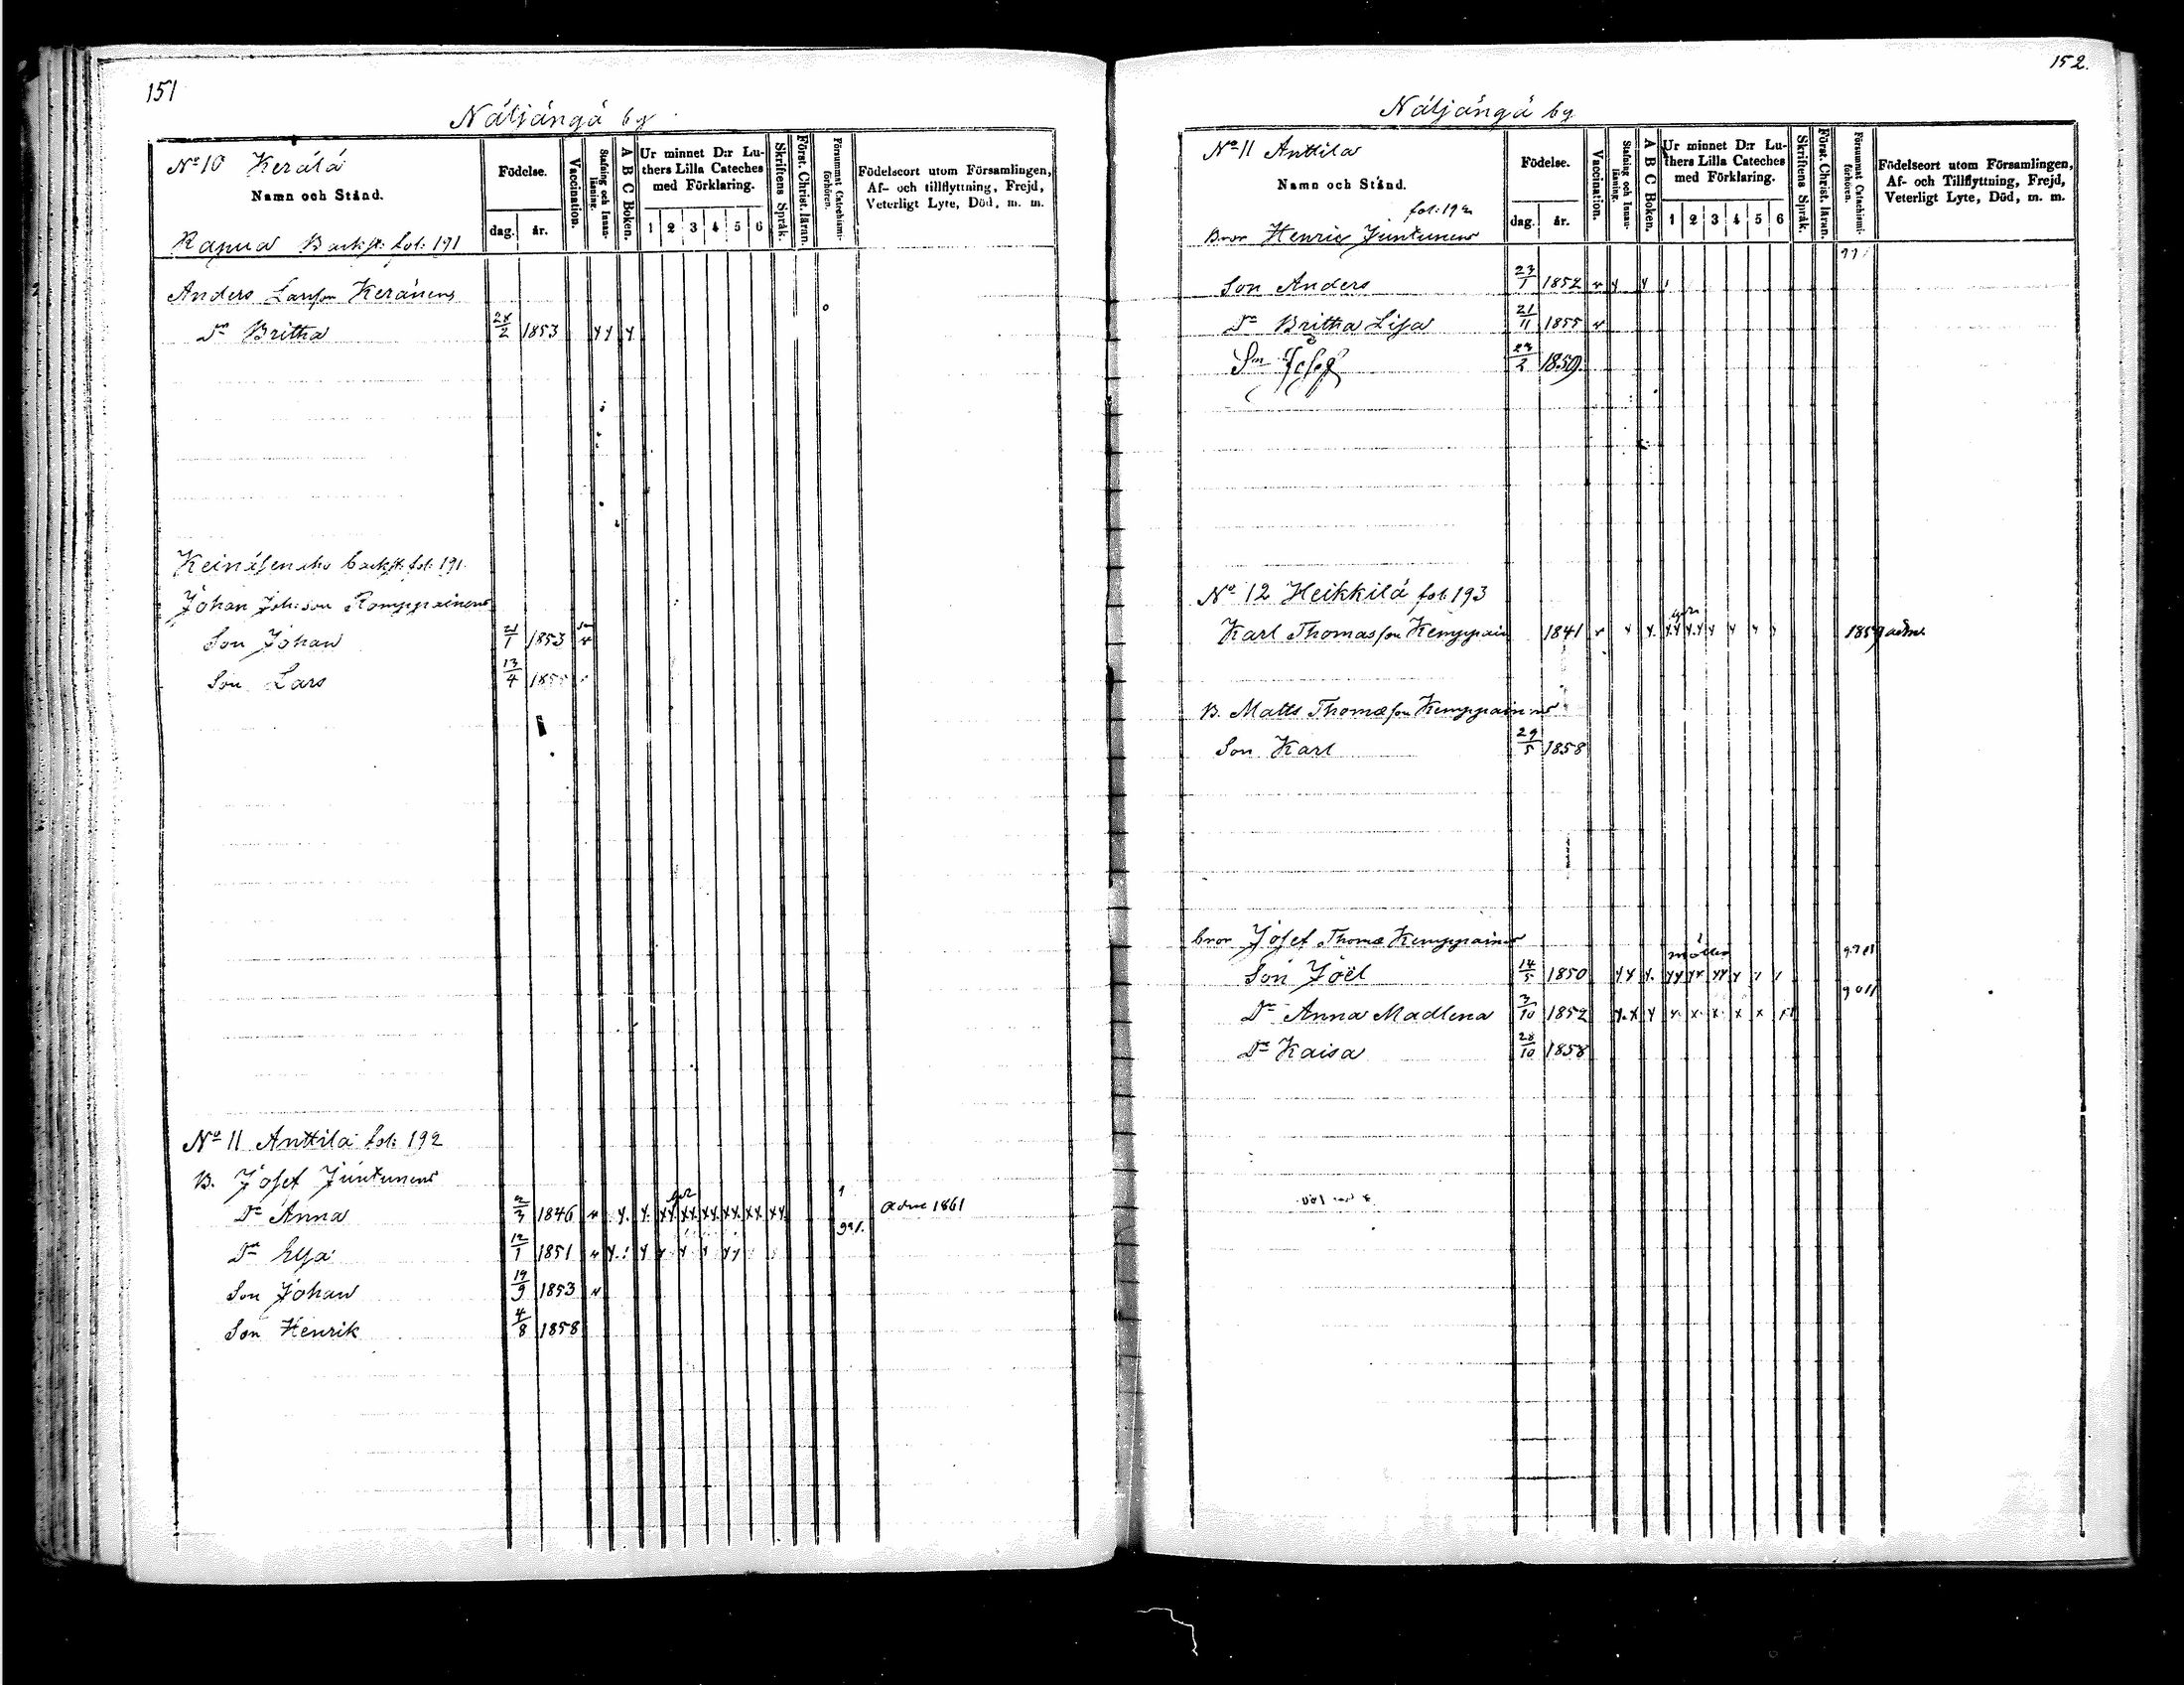 151
Näljängä by
No 10 Kerälä
Namn och Stånd.
Födelse.
dag. år.
Vaccination.
Stafning och Innanläsning.
A B C Boken.
Ur minnet D:r Luthers Lilla Cateches med Förklaring.
1 2 3 4 5 6
Skriftens Språk.
Först. Christ. läran.
Försummat Catechismiförhören.
Födelseort utom Församlingen, Af- och tillflyttning, Frejd, Veterligt Lyte, Död, m. m.
Rapua Backst: fol: 191
Anders Larsson Keränens
Dr Britha 28/2 1853 y y y
backst. fol: 191
Johan Johsson Romppainens
Son Johan 21/1 1853 v
Son Lars 13/4
No 11 Anttila fol: 192
B. Josef Juntunens
Dr Anna 2/3 1846 v y. y. xx xx xx xx xx xx Adm 1861
Dr Elsa 12/1 1851 v
Son Johan 19/9 1853 v
Son Henrik 4/8 1858
152.
Näljängä by
No 11 Anttila
Namn och Stånd.
Födelse.
dag. år.
Vaccination.
Stafning och Innanläsning.
A B C Boken.
Ur minnet D:r Luthers Lilla Cateches med Förklaring.
1 2 3 4 5 6
Skriftens Språk.
Först. Christ. läran.
Försummat Catechismiförhören.
Födelseort utom Församlingen, Af- och Tillflyttning, Frejd, Veterligt Lyte, Död, m. m.
fol: 192
Bror Henric Juntunens
Son Anders 23/1 1852 v y y
Dr Britha Lisa 21/11 1855 v
Son Josef 23/2 1859.
No 12 Heikkilä fol: 193
Karl Thomasson Kemppain 1841 v y y. 1859 adm.
B. Matts Thomasson Kemppainens
Son Karl 29/5 1858
bror Josef Thoms Kemppainen
Son Joël 14/5 1850 y y y.
Dr Anna Madlena 3/10 1852 y. x y x. x. x. x x
Dr Kaisa 28/10 1858